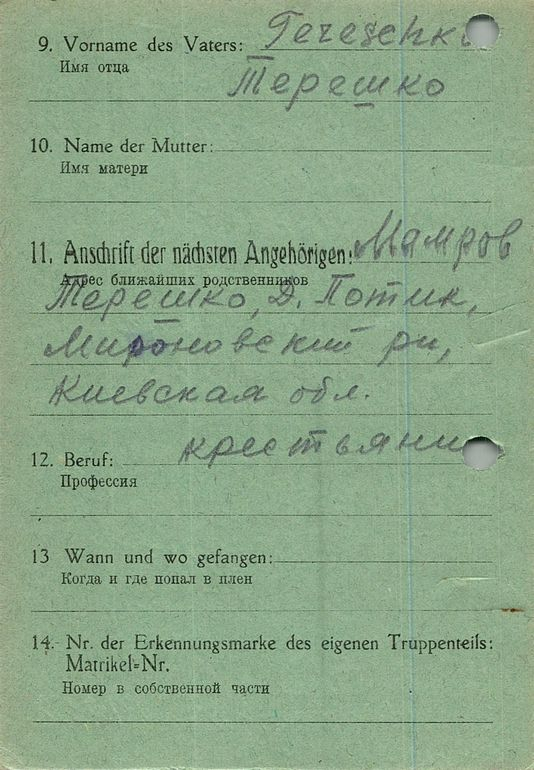 9. Vorname des Vaters: Tereschko
Имя отца
Терешко
10. Name der Mutter:
Имя матери
11. Anschrift der nächsten Angehörigen: Мамров
Адрес ближайших родственников
Терешко, Д. Потик,
Мироновский рн,
Киевская обл.
12. Beruf: крестьянин
Профессия
13 Wann und wo gefangen:
Когда и где попал в плен
14. Nr. der Erkennungsmarke des eigenen Truppenteils:
Matrikel=Nr.
Номер в собственной части